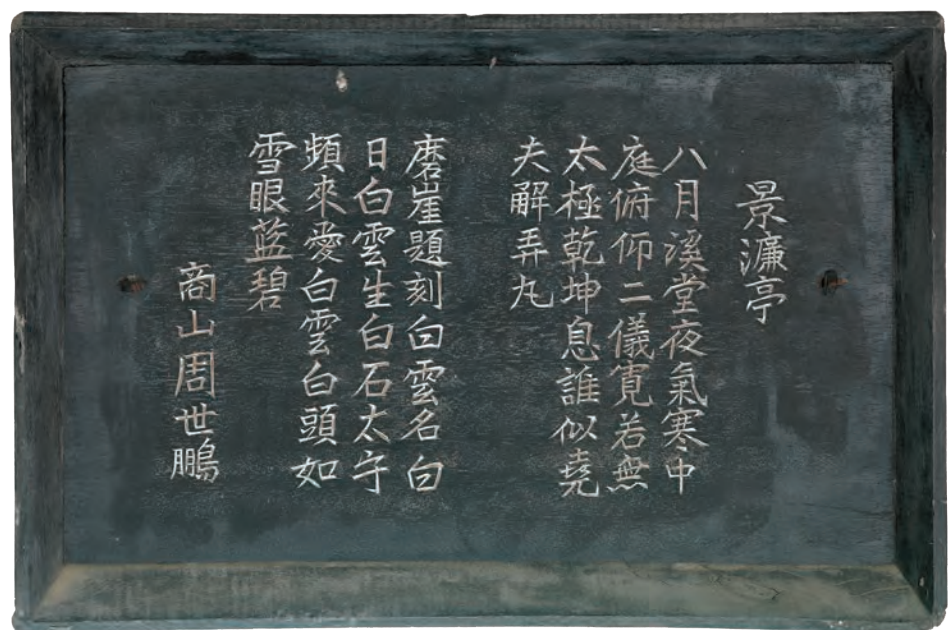 景濂亭
八月溪堂夜氣寒中
庭俯仰二儀寬若無
太極乾坤息誰似堯
夫解弄丸
磨崖題刻白雲名白
日白雲生白石太守
頻來愛白雲白頭如
雪眼蓝碧
商山周世鵬